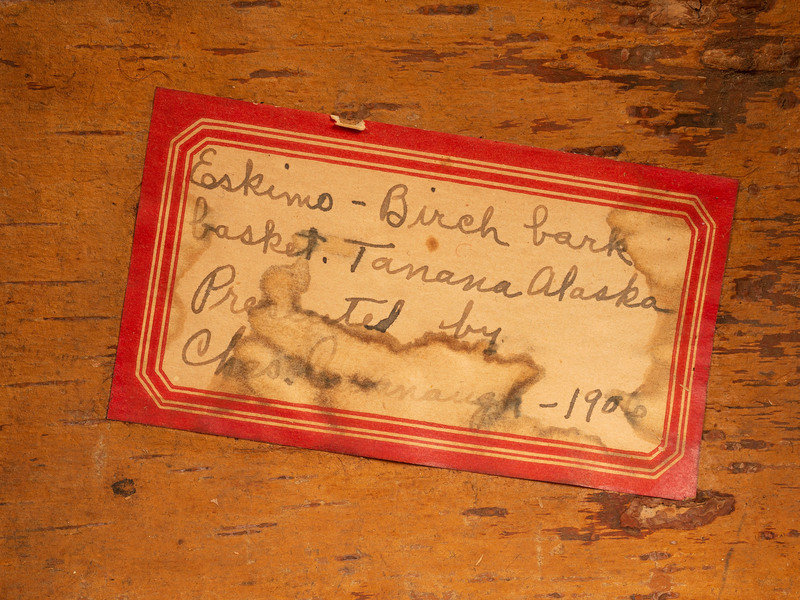 Eskimo - Birch bark
basket. Tanana Alaska
Presented by
Chas. Cavanaugh - 1906